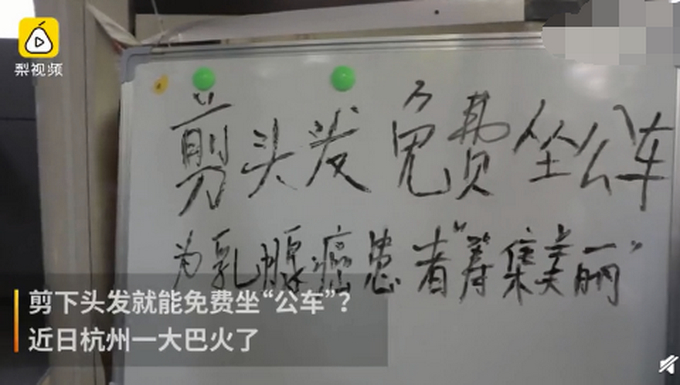 梨视频
剪头发免费坐公车
为乳腺癌患者"筹集美丽"
剪下头发就能免费坐“公车”？
近日杭州一大巴火了